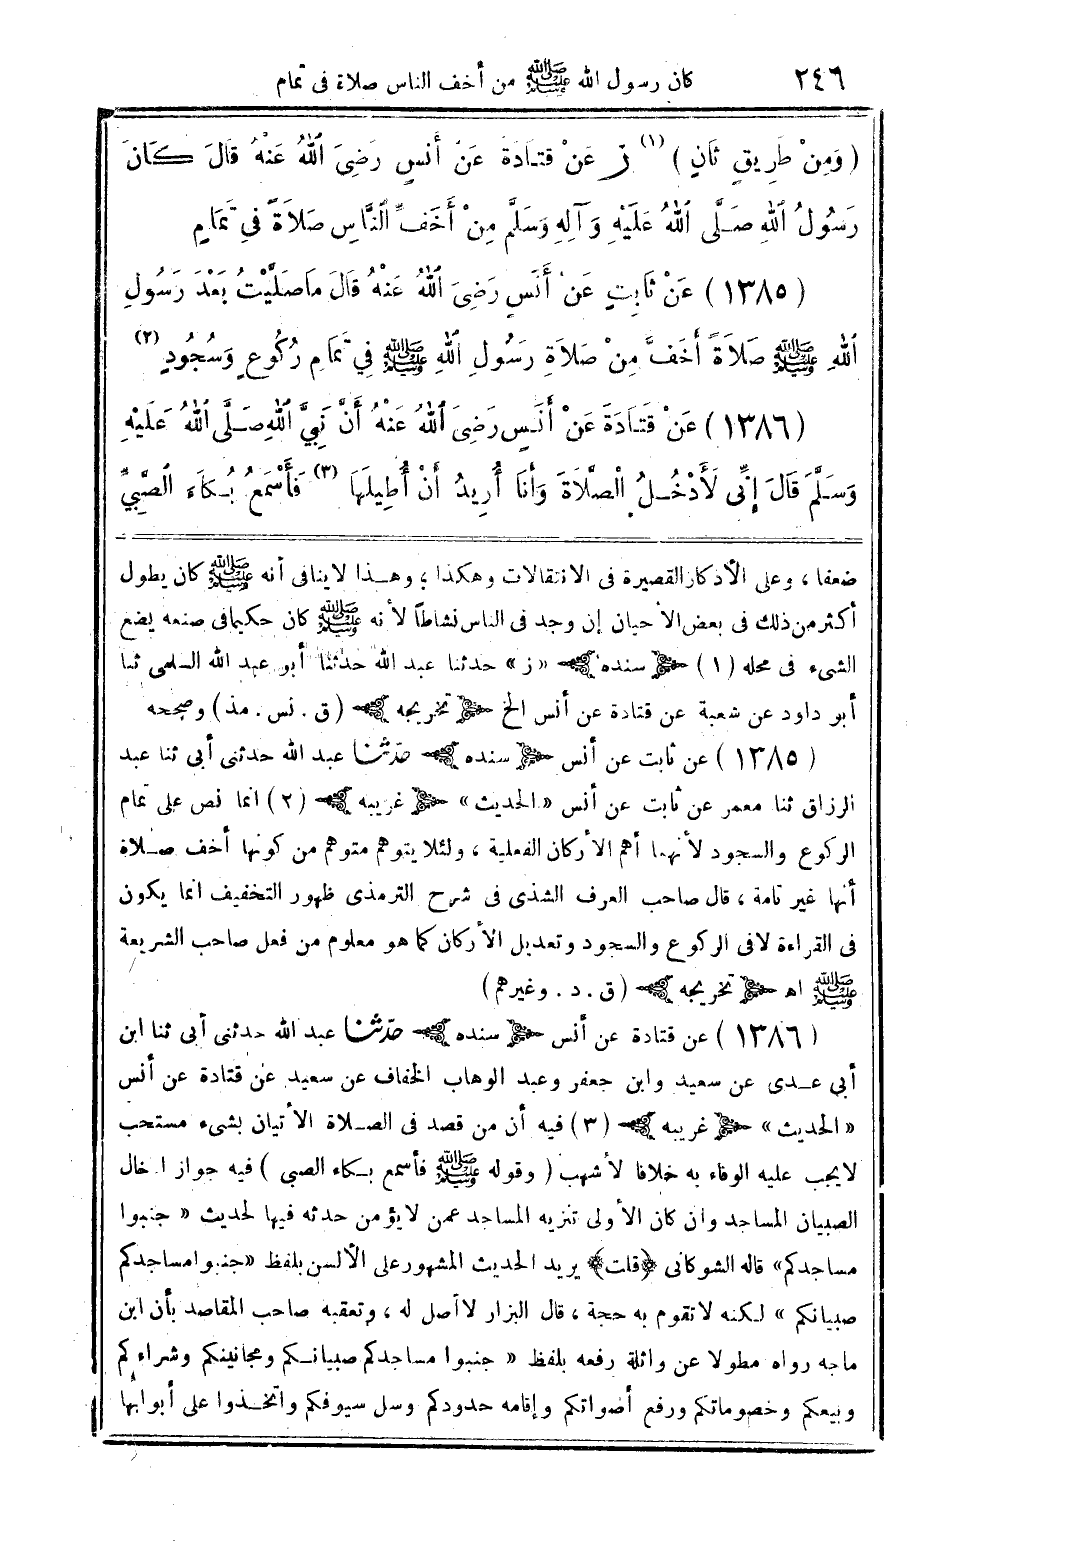 ٢٤٦ كان رسول الله ﷺ من أخف الناس صلاة فى تمام
( وَمِنْ طَرِيقٍ ثَانٍ ) (١) ز عَنْ قَتَادَةَ عَنْ أَنَسٍ رَضِىَ اللهُ عَنْهُ قَالَ كَانَ
رَسُولُ اللهِ صَلَّى اللهُ عَلَيْهِ وَآلِهِ وَسَلَّمَ مِنْ أَخَفِّ النَّاسِ صَلَاةً فِى تَمَامٍ
( ١٣٨٥ ) عَنْ ثَابِتٍ عَنْ أَنَسٍ رَضِىَ اللهُ عَنْهُ قَالَ مَاصَلَّيْتُ بَعْدَ رَسُولِ
اللهِ ﷺ صَلَاةً أَخَفَّ مِنْ صَلَاةِ رَسُولِ اللهِ ﷺ فِي تَمَامِ رُكُوعٍ وَسُجُودٍ (٢)
( ١٣٨٦ ) عَنْ قَتَادَةَ عَنْ أَنَسٍ رَضِىَ اللهُ عَنْهُ أَنَّ نَبِىَّ اللهِ صَلَّى اللهُ عَلَيْهِ
وَسَلَّمَ قَالَ إِنِّى لَأَدْخُلُ الصَّلَاةَ وَأَنَا أُرِيدُ أَنْ أُطِيلَهَا (٣) فَأَسْمَعُ بُكَاءَ الصَّبِىِّ
ضعفا ، وعلى الأذكار القصيرة فى الانتقالات وهكذا ؛ وهذا لاينافى أنه ﷺ كان يطول
أكثر من ذلك فى بعض الأحيان إن وجد فى الناس نشاطاً لأنه ﷺ كان حكيما فى صنعه يضع
الشىء فى محله ( ١ ) ﴿ سنده ﴾ «ز» حدثنا عبد الله حدثنا أبو عبد الله السلمى ثنا
أبو داود عن شعبة عن قتادة عن أنس الخ ﴿ تخريجه ﴾ ( ق . نس . مذ ) وصححه
( ١٣٨٥ ) عن ثابت عن أنس ﴿ سنده ﴾ حدثنا عبد الله حدثنى أبى ثنا عبد
الرزاق ثنا معمر عن ثابت عن أنس «الحديث» ﴿ غريبه ﴾ ( ٢ ) انما نص على تمام
الركوع والسجود لأنهما أهم الأركان الفعلية ، ولئلا يتوهم متوهم من كونها أخف صلاة
أنها غير تامة ، قال صاحب العرف الشذى فى شرح الترمذى ظهور التخفيف انما يكون
فى القراءة لافى الركوع والسجود وتعديل الأركان كما هو معلوم من فعل صاحب الشريعة
ﷺ اهـ ﴿ تخريجه ﴾ ( ق . د . وغيرهم )
( ١٣٨٦ ) عن قتادة عن أنس ﴿ سنده ﴾ حدثنا عبد الله حدثنى أبى ثنا ابن
أبى عدى عن سعيد وابن جعفر وعبد الوهاب الخفاف عن سعيد عن قتادة عن أنس
«الحديث» ﴿ غريبه ﴾ ( ٣ ) فيه أن من قصد فى الصلاة الأتيان بشىء مستحب
لايجب عليه الوفاء به خلافا لأشهب ( وقوله ﷺ فأسمع بكاء الصبى ) فيه جواز ادخال
الصبيان المساجد وان كان الأولى تنزيه المساجد عمن لايؤمن حدثه فيها لحديث « جنبوا
مساجدكم» قاله الشوكانى ﴿قلت﴾ يريد الحديث المشهور على الألسن بلفظ «جنبوا مساجدكم
صبيانكم » لكنه لاتقوم به حجة ، قال البزار لاأصل له ، وتعقبه صاحب المقاصد بأن ابن
ماجه رواه مطولا عن واثلة رفعه بلفظ « جنبوا مساجدكم صبيانكم ومجانينكم وشراءكم
وبيعكم وخصوماتكم ورفع أصواتكم وإقامه حدودكم وسل سيوفكم واتخذوا على أبوابها